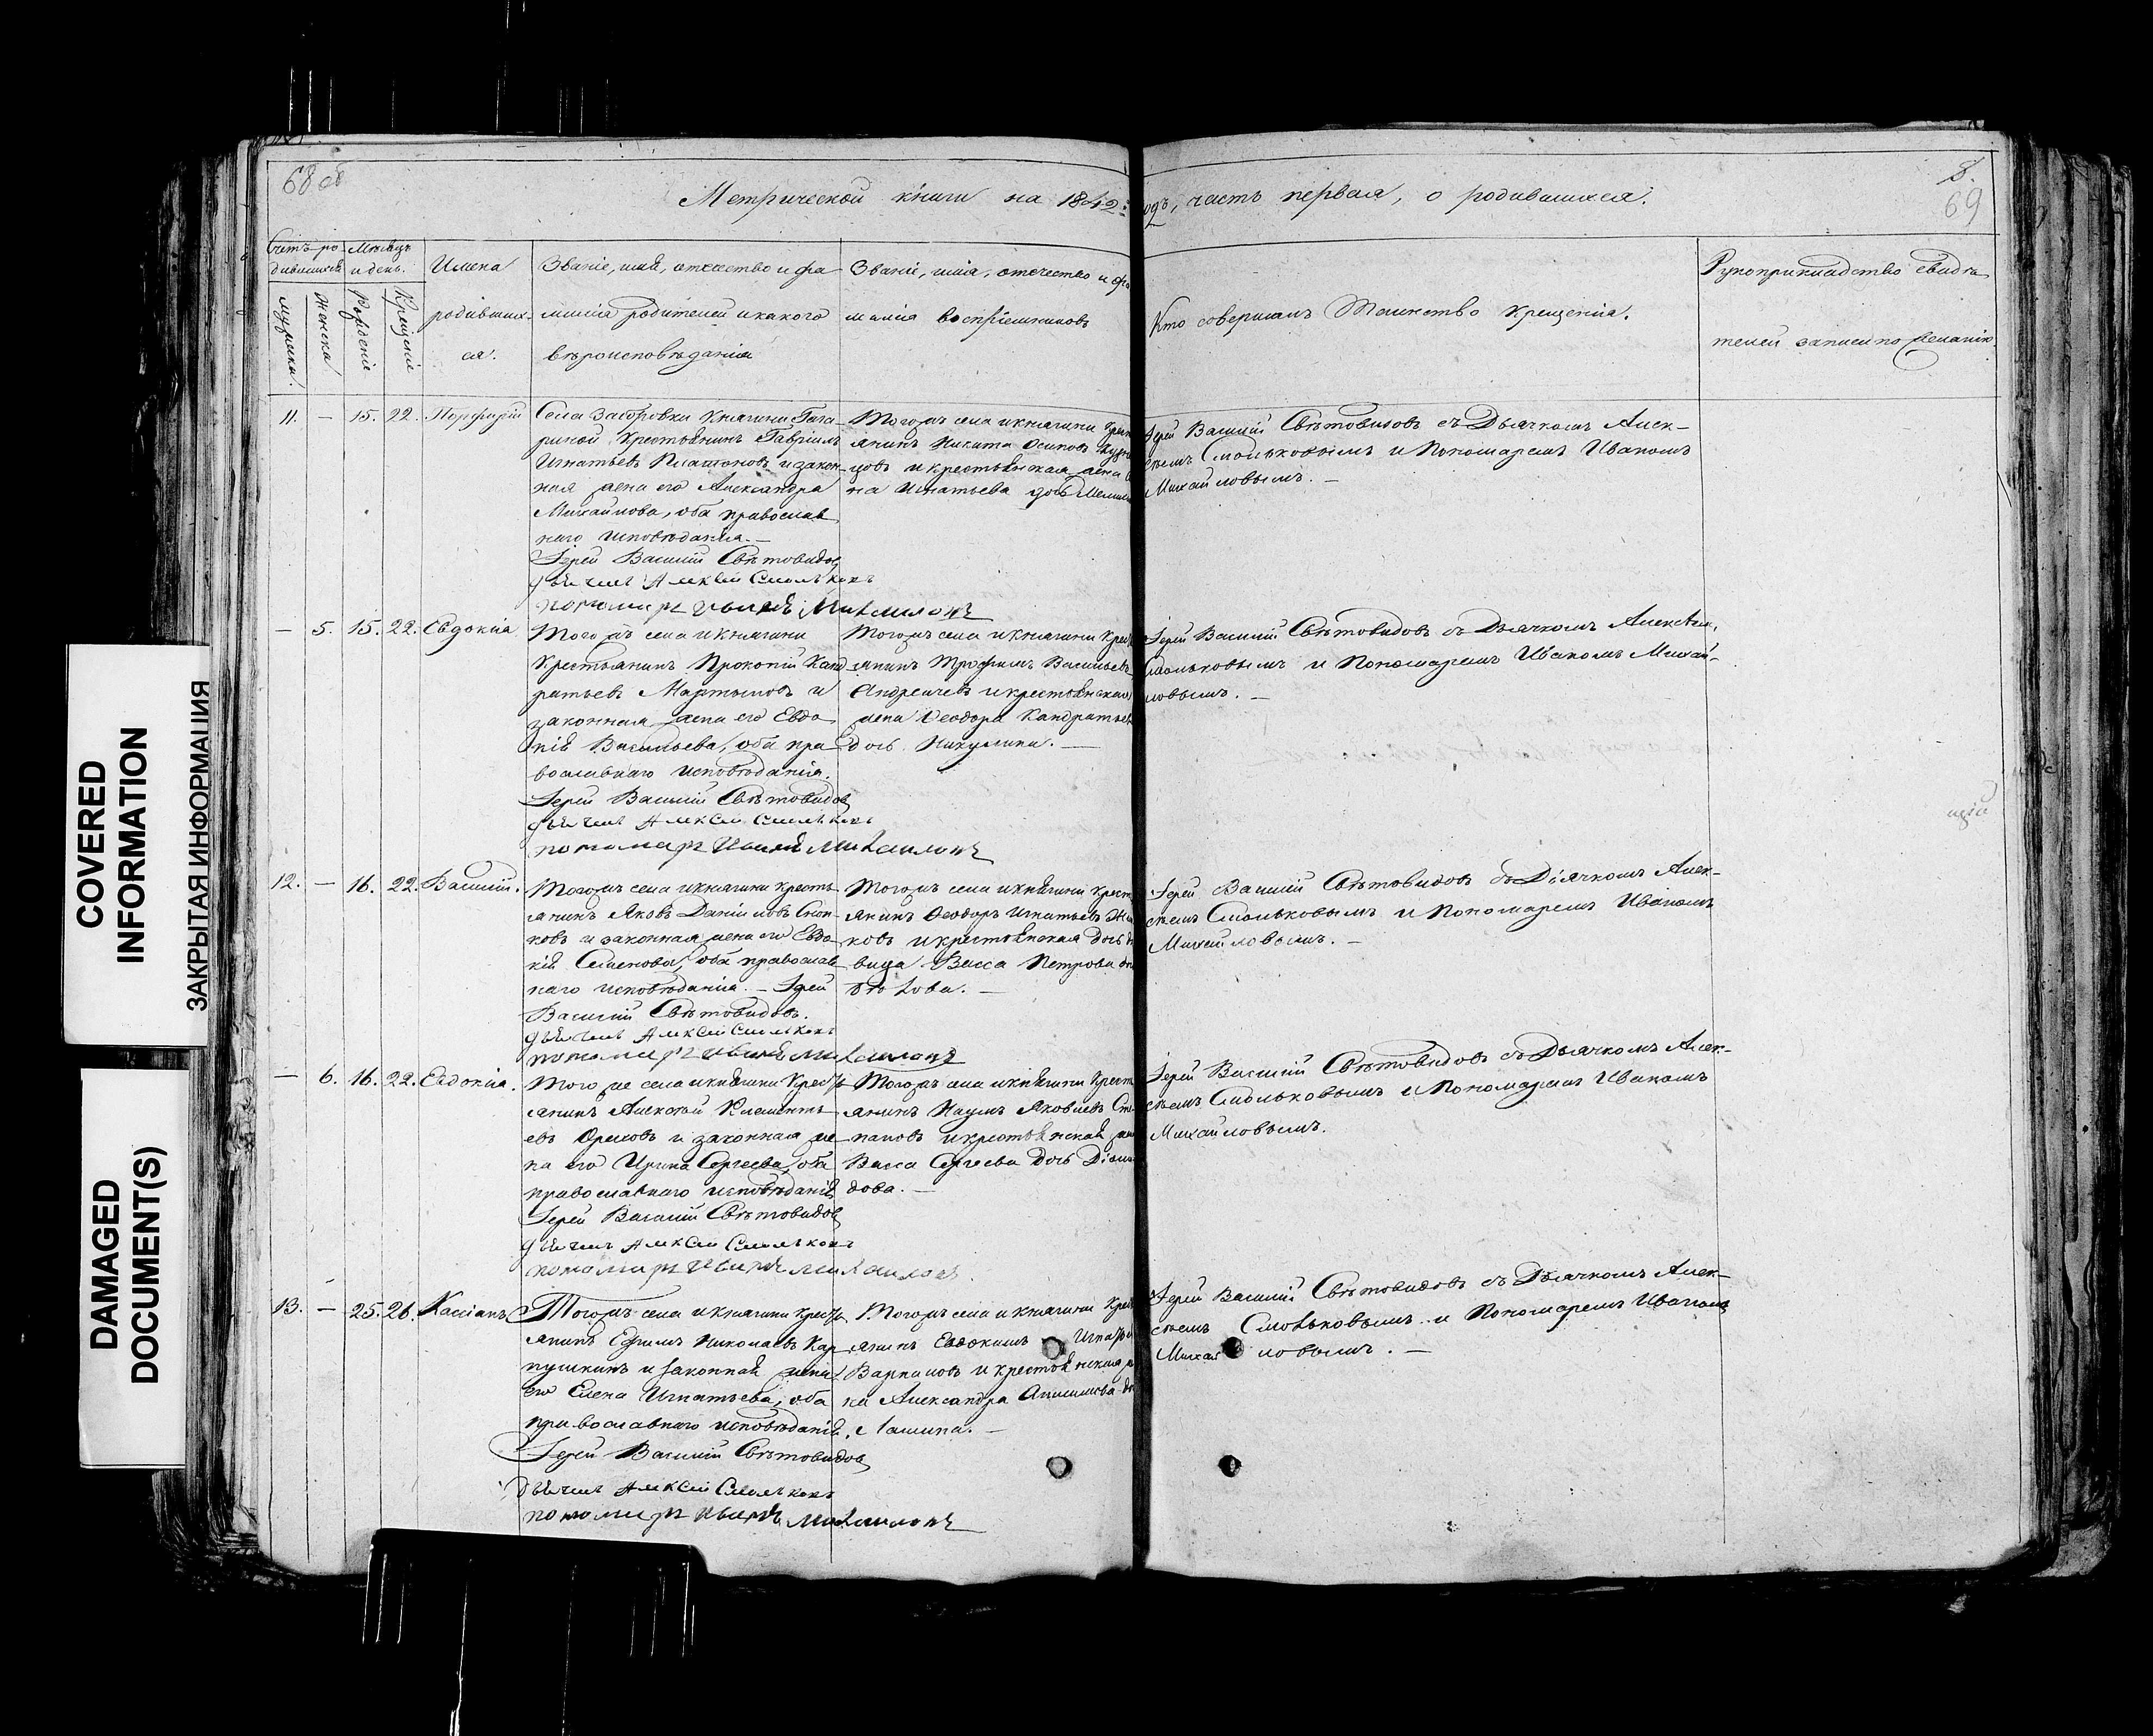 68 об
8.
69
Метрической книги на 1842: одъ, часть первая, о родившихся.
Счетъ ро-
дившихся
Мѣсяцъ
и день.
мужеска.
женска
Рожденіе
Крещеніе
Имена
родивших-
ся.
Званіе, имя, отечество и фа-
милія родителей и какого
вѣроисповѣданія
Званіе, имія, отечество и фа
милія воспріемниковъ
Кто совершалъ Таинство Крещенія.
Рукоприкладство свидѣ
телей записи по желанію.
11. — 15. 22. Порфирій
Села Засѣровки Княгини Гага
риной Крестьянинъ Гавріилъ
Игнатьевъ Платоновъ и закон-
ная жена его Александра
Михайлова, оба православ
наго исповѣданія.—
Іерей Василій Свѣтовидов
дьячекъ Алексѣй Смольковъ
пономарь Иванъ Михаиловъ
Тогожъ села и княгини крес
янинъ Никита Осиповъ
цовъ и крестьянская жена
на Игнатьева дочь
Іерей Василій Свѣтовидовъ съ Дьячкомъ Алек-
сѣемъ Смольковымъ и Пономаремъ Иваномъ
Михайловымъ. —
— 5. 15. 22. Евдокія
Тогожъ села и княгини
Крестьянинъ Прокопій Кан
ратьевъ Мартыновъ и
законная жена его Евдо
кія Васильева, оба пра
вославнаго исповѣданія.
Іерей Василій Свѣтовидов
дьячекъ Алексѣй Смольковъ
пономарь Иванъ Михаиловъ
Тогожъ села и княгини крес
янинъ Трофимъ Васильевъ
Андреичевъ и крестьянская
жена Ѳеодора Кандратьев
дочь Никулина. —
Іерей Василій Свѣтовидовъ съ Дьячкомъ Алексѣем.
Смольковымъ и Пономаремъ Иваномъ Михай-
ловымъ. —
12. — 16. 22. Василій.
Тогожъ села и княгини кресть
янинъ Яковъ Даніиловъ Скоп-
ковъ и законная жена его Евдо
кія Семенова, оба православ
наго исповѣданія. — Іерей
Василій Свѣтовидовъ.
дьячекъ Алексѣй Смольковъ
пономарь Иванъ Михаиловъ
Тогожъ села и княгини крест
янинъ Ѳеодоръ Игнатьевъ
ковъ и крестьянская дочь дѣ
вица Васса Петрова
Іерей Василій Свѣтовидовъ съ Діячкомъ Алек-
сѣемъ Смольковымъ и Пономаремъ Иваномъ
Михайловымъ. —
— 6. 16. 22. Евдокія.
Того же села и княгини Крестья
янинъ Алексѣй Климентъ
евъ Орловъ и законная же
на его Ирина Сергеева, оба
православнаго исповѣданія
Іерей Василій Свѣтовидов
дьячекъ Алексѣй Смольковъ
пономарь Иванъ Михаиловъ.
Тогожъ села и княгини крест
янинъ Наумъ Яковлевъ Сте
пановъ и крестьянская жен
Васса Сергеева дочь
дова. —
Іерей Василій Свѣтовидовъ съ Дьячкомъ Алек-
сѣемъ Смольковымъ и Пономаремъ Иваномъ
Михайловымъ.
13. — 25. 26. Кассіанъ
Тогожъ села и княгини крестья
янинъ Ефимъ Николаевъ Кар
пушкинъ и законная жена
его Елена Игнатьева, оба
православнаго исповѣданія.
Іерей Василій Свѣтовидов
Дьячекъ Алексѣй Смольковъ
пономарь Иванъ Михаиловъ
Тогожъ села и княгини крес
янинъ Евдокимъ Игнатьев
Варламовъ и крестьянская же
на Александра
Лашина. —
Іерей Василій Свѣтовидовъ съ Дьячкомъ Алек-
сѣемъ Смольковымъ и Пономаремъ Иваномъ
Михайловымъ. —
COVERED
INFORMATION
ЗАКРЫТАЯ ИНФОРМАЦИЯ
DAMAGED
DOCUMENT(S)